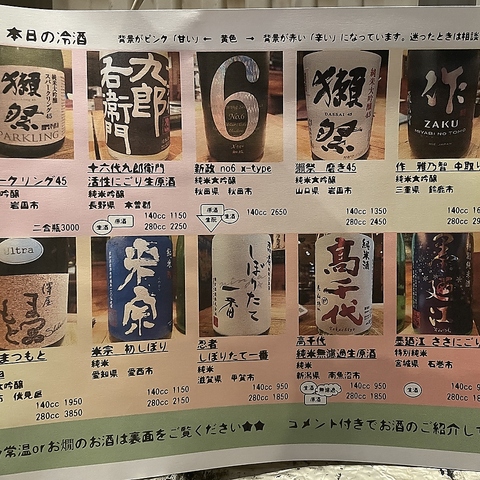 本日の冷酒
背景がピンク「甘い」← 黄色 → 背景が赤い「辛い」になっています。迷ったときは相談
獺祭
スパークリング45
SPARKLING
九郎
右衛門
6
No.6
純米大吟醸
磨き45
獺祭
DASSAI 45
作
ZAKU
MIYABI NO TOMO
ークリング45
吟醸
岩国市
二合瓶3000
十六代九郎右衛門
活性にごり生原酒
純米吟醸
長野県 木曽郡
生酒
原酒
140cc 1150
280cc 2250
新政 no6 x-type
純米大吟醸
秋田県 秋田市
原酒
生酛
生酒
140cc 2650
獺祭 磨き45
純米大吟醸
山口県 岩国市
140cc 1350
280cc 2450
作 雅乃智 中取り
純米大吟醸
三重県 鈴鹿市
140cc
280cc
Ultra
澤屋
まつもと
純米
米宗
しぼりたて
一番
純米酒
高千代
墨廼江
まつもと
大吟醸
市 伏見区
140cc 1950
280cc 3850
米宗 初しぼり
純米
愛知県 愛西市
140cc 1150
280cc 2150
忍者
しぼりたて一番
純米
滋賀県 甲賀市
140cc 950
280cc 1850
高千代
純米無濾過生原酒
純米
新潟県 南魚沼市
生酒
無濾過
原酒
140cc 950
280cc 1850
墨廼江 ささにごり
特別純米
宮城県 石巻市
生酒
140cc
280cc
常温orお燗のお酒は裏面をご覧ください★★ コメント付きでお酒のご紹介し